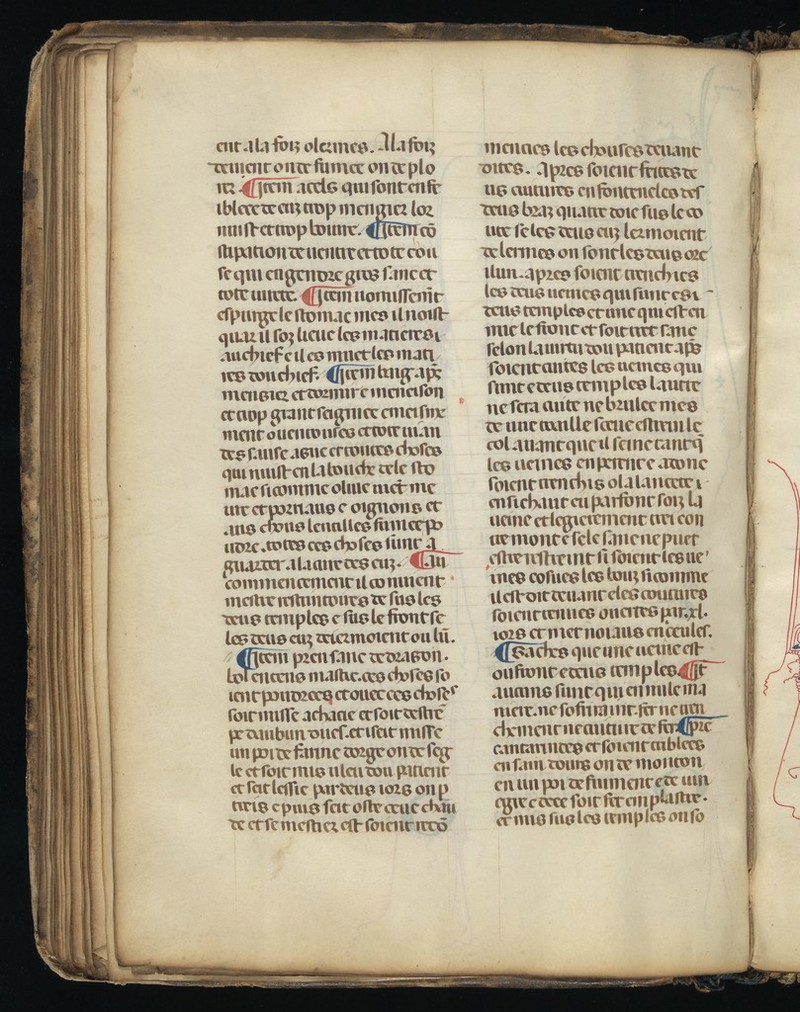 ent a la foiz olermes. A la foiz
deuient on de fumee on de plo
rer ¶ Item a cels qui sont enfe
iblece de euz trop mengier lor
nuist et trop boiure. ¶ Item cõ
stipation de uentre et tote cou
se qui engendre gros sanc et
tote iurete. ¶ Item uomissem̃t
espurge le stomac mes il noist
quar il soz lieue les matieres i
au chief e il esmuet les mati
res dou chief. ¶ Item baig apͤs
mengier et dormir e meneison
et trop grant seignice
ment
des sause ague et toutes choses
qui nuist en la bouche dele sto
mac si comme oliue met me
ure et porriaus e oignons et
aus chous lentilles fumee po
udre. totes ces choses sunt a
guarder a la cure des euz. ¶ Au
commencement il conuient
mestre restrintoires de sus les
deus temples e sus le front se
les deus euz delermoient ou lũ.
¶ Item pren sanc de dragon.
bol encens mastic. ces choses so
ient poudrees et ouec ces choses
soit misse achacie et soit destrẽ
pe daubun douef. et iseit misse
un poi de farine dorge on de seg
le et soit mis uleu dou patient
et seit lessie par deus iors on p
treis e puis seit oste o eue chau
de et se mestier est soient recõ
mencies les chouses deuant
dites. Apres soient feites de
us cautures en fonteneles des
deus braz quatre doie sus le co
ute se les deus euz lermoient
de lermes on sont les deus ore
ilun. apres soient trenchies
les deus ueines qui sunt es i
deus temples et une qui est en
mie le front et soit tret sanc
selon la uirtu dou patient apͤs
soient cuites les ueines qui
sunt e deus temples lautre
ne sera cuite ne brulee mes
de une touaille soeue estrein le
col auant que il seine tant q̃
les ueines en perent e adonc
soient trenchis o la lancete i
en fichant en parfont soz la
ueine et legierement trei con
tre mont e se le sanc ne puet
estre restreint si soient les ue
ines cosues les bouz si comme
il est dit deuant e les coutures
soient tenues ouertes par .xl.
iors et met noiaus en ceules.
¶ Saches que une ueine est
ou front e deus temples ¶ It
aucuns sunt qui en nule ma
niere. ne sofriraint. fer ne tren
chement ne cauture de fer ¶ Pre
cantarides et soient triblees
en saim dours on de mouton
en un poi de fiument e de uin
egre e de ce soit fet emplastre.
et mis sus les temples on so